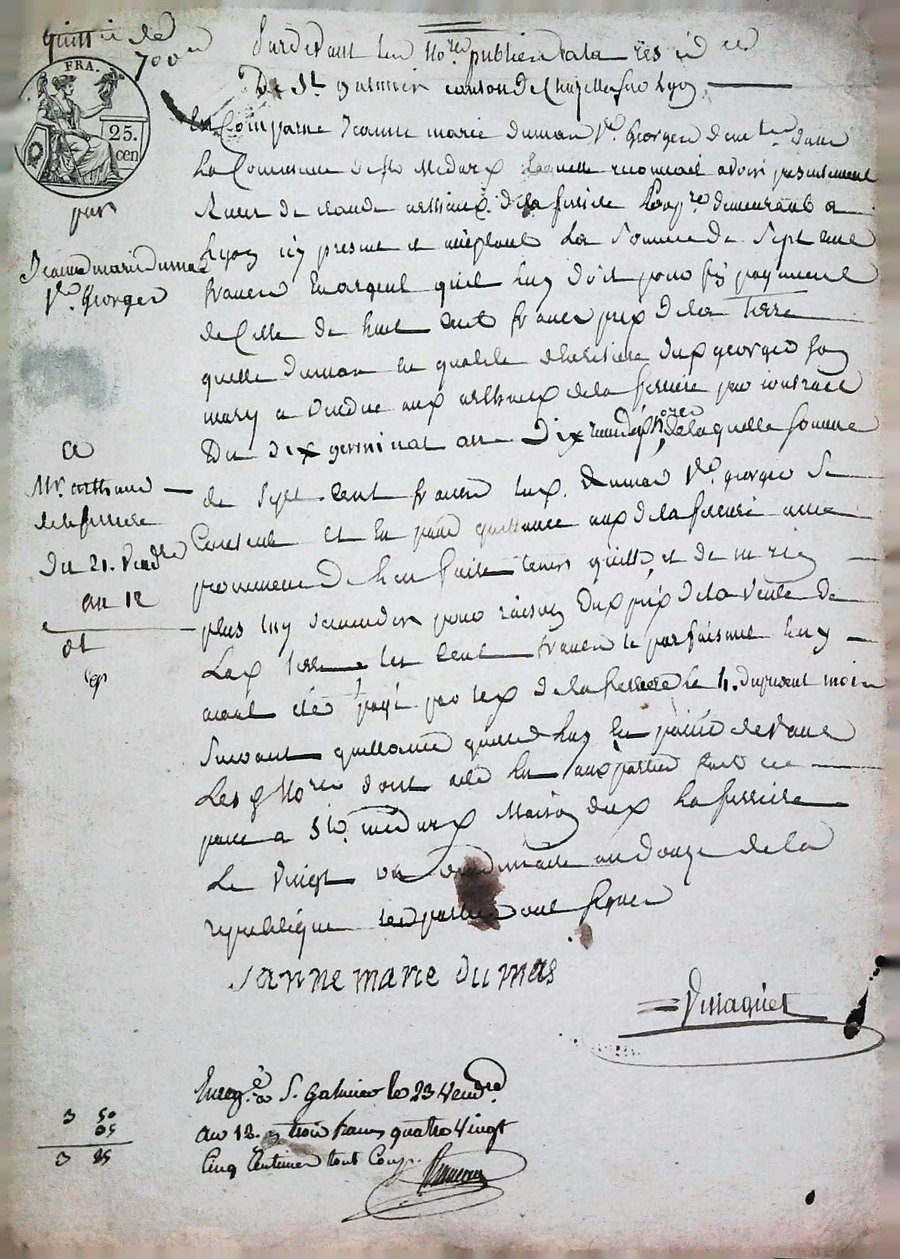 quitt.ce de
700
FRA.
25.
cen
par
Jeanne marie Dumas
V.e Georges
a
Mr. arthaud
de la ferriere
Du 21. Vend.re
an 12
3 50
05
3 85
Pardevant les No.res publics a la residence
De St. galmier canton de Chazelle sur Lyon
est Comparue Jeanne marie dumas V.e Georges demt. dans
La Commune de St. Medard Laquelle reconnait avoir presentement
Receu de claude arthaud de la ferriere demeurant a
Lyon icy present et acceptant La Somme de Sept cent
francs en argent qu'il luy doit pour fin payement
de Celle de huit cent francs prix de la Terre
quelle dumas en qualite d'heritiere dud. georges son
mary a Vendue aud. arthaud de la ferriere par contract
Du dix germinal an Dix de laquelle somme
de Sept cent francs lad. dumas V.e georges Se
Contente et en passe quittance aud. de la ferriere avec
promesse de l'en faire tenir quitte et de ne rien
plus luy demander pour raison dud. prix de la Vente de
Lad. terre les Cent francs le parfaisant luy
ayant été payé par led. de la ferriere le 4. du present mois
Suivant quittance quelle luy en passée devant
Les No.res dont acte lu aux parties fait et
passé a St. medard Maison dud. La ferriere
Le Vingt un Vendemiaire an douze de la
republique les parties ont signé
Jannemarie dumas
Enreg.é a S. Galmier le 23 Vend.re
an 12. trois francs quatre Vingt
Cinq Centimes tout Comp.